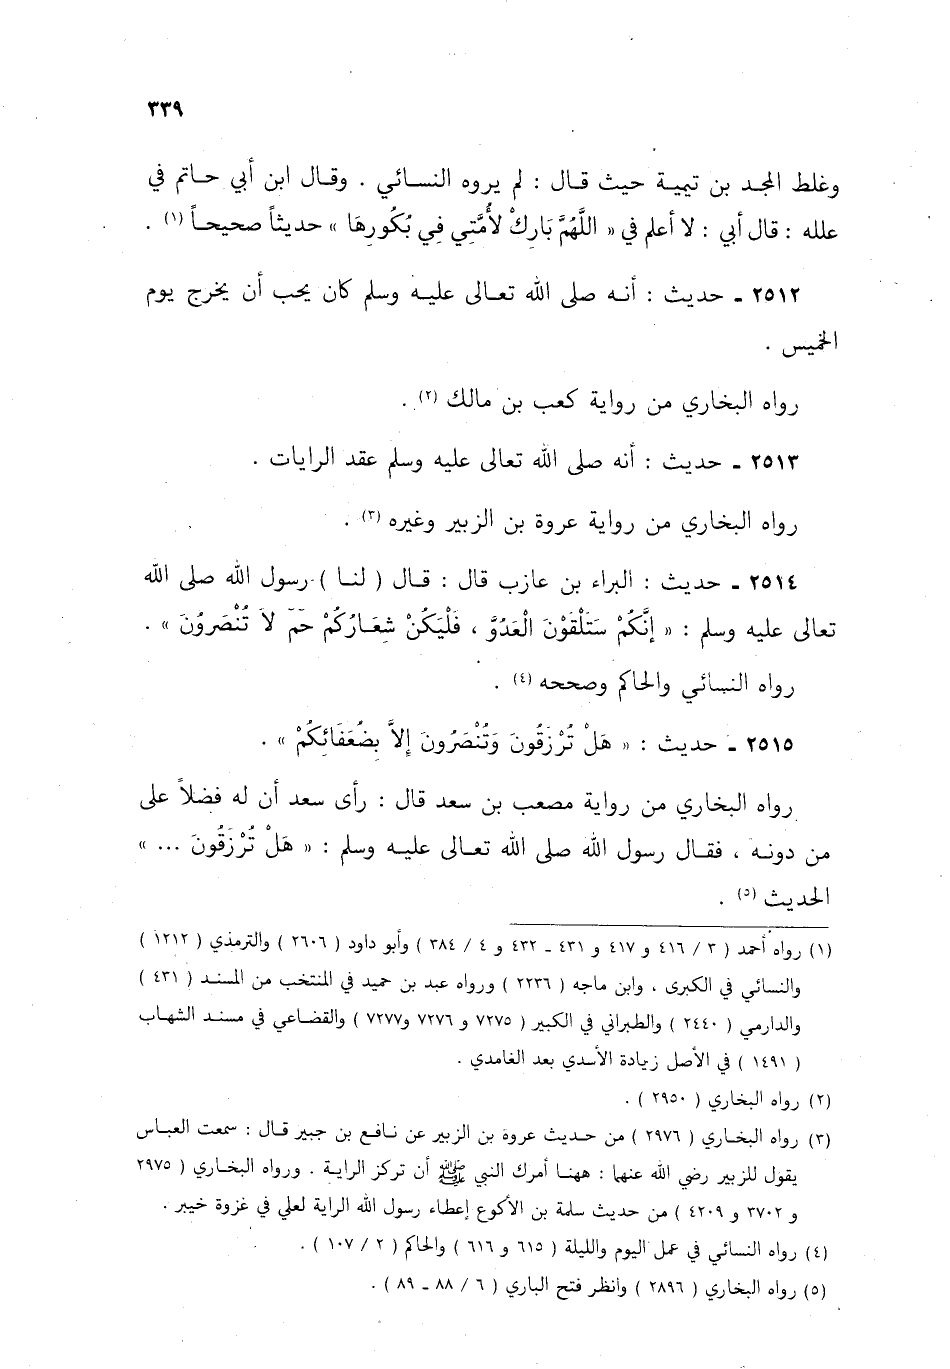 ٣٣٩
وغلط المجد بن تيمية حيث قال : لم يروه النسائي . وقال ابن أبي حاتم في
علله : قال أبي : لا أعلم في « اللَّهُمَّ بَارِكْ لأُمَّتِي فِي بُكُورِهَا » حديثاً صحيحاً (١) .
٢٥١٢ ـ حديث : أنه صلى الله تعالى عليه وسلم كان يحب أن يخرج يوم
الخميس .
رواه البخاري من رواية كعب بن مالك (٢) .
٢٥١٣ ـ حديث : أنه صلى الله تعالى عليه وسلم عقد الرايات .
رواه البخاري من رواية عروة بن الزبير وغيره (٣) .
٢٥١٤ ـ حديث : البراء بن عازب قال : قال ( لنا ) رسول الله صلى الله
تعالى عليه وسلم : « إِنَّكُمْ سَتَلْقَوْنَ الْعَدُوَّ ، فَلْيَكُنْ شِعَارُكُمْ حَمَ لاَ تُنْصَرُونَ » .
رواه النسائي والحاكم وصححه (٤) .
٢٥١٥ ـ حديث : « هَلْ تُرْزَقُونَ وَتُنْصَرُونَ إِلاَّ بِضُعَفَائِكُمْ » .
رواه البخاري من رواية مصعب بن سعد قال : رأى سعد أن له فضلاً على
من دونه ، فقال رسول الله صلى الله تعالى عليه وسلم : « هَلْ تُرْزَقُونَ ... »
الحديث (٥) .
(١) رواه أحمد ( ٣ / ٤١٦ و ٤١٧ و ٤٣١ ـ ٤٣٢ و ٤ / ٣٨٤ ) وأبو داود ( ٢٦٠٦ ) والترمذي ( ١٢١٢ )
والنسائي في الكبرى ، وابن ماجه ( ٢٢٣٦ ) ورواه عبد بن حميد في المنتخب من المسند ( ٤٣١ )
والدارمي ( ٢٤٤٠ ) والطبراني في الكبير ( ٧٢٧٥ و ٧٢٧٦ و٧٢٧٧ ) والقضاعي في مسند الشهاب
( ١٤٩١ ) في الأصل زيادة الأسدي بعد الغامدي .
(٢) رواه البخاري ( ٢٩٥٠ ) .
(٣) رواه البخاري ( ٢٩٧٦ ) من حديث عروة بن الزبير عن نافع بن جبير قال : سمعت العباس
يقول للزبير رضي الله عنهما : ههنا أمرك النبي ﷺ أن تركز الراية . ورواه البخاري ( ٢٩٧٥
و ٣٧٠٢ و ٤٢٠٩ ) من حديث سلمة بن الأكوع إعطاء رسول الله الراية لعلي في غزوة خيبر .
(٤) رواه النسائي في عمل اليوم والليلة ( ٦١٥ و ٦١٦ ) والحاكم ( ٢ / ١٠٧ ) .
(٥) رواه البخاري ( ٢٨٩٦ ) وانظر فتح الباري ( ٦ / ٨٨ ـ ٨٩ ) .